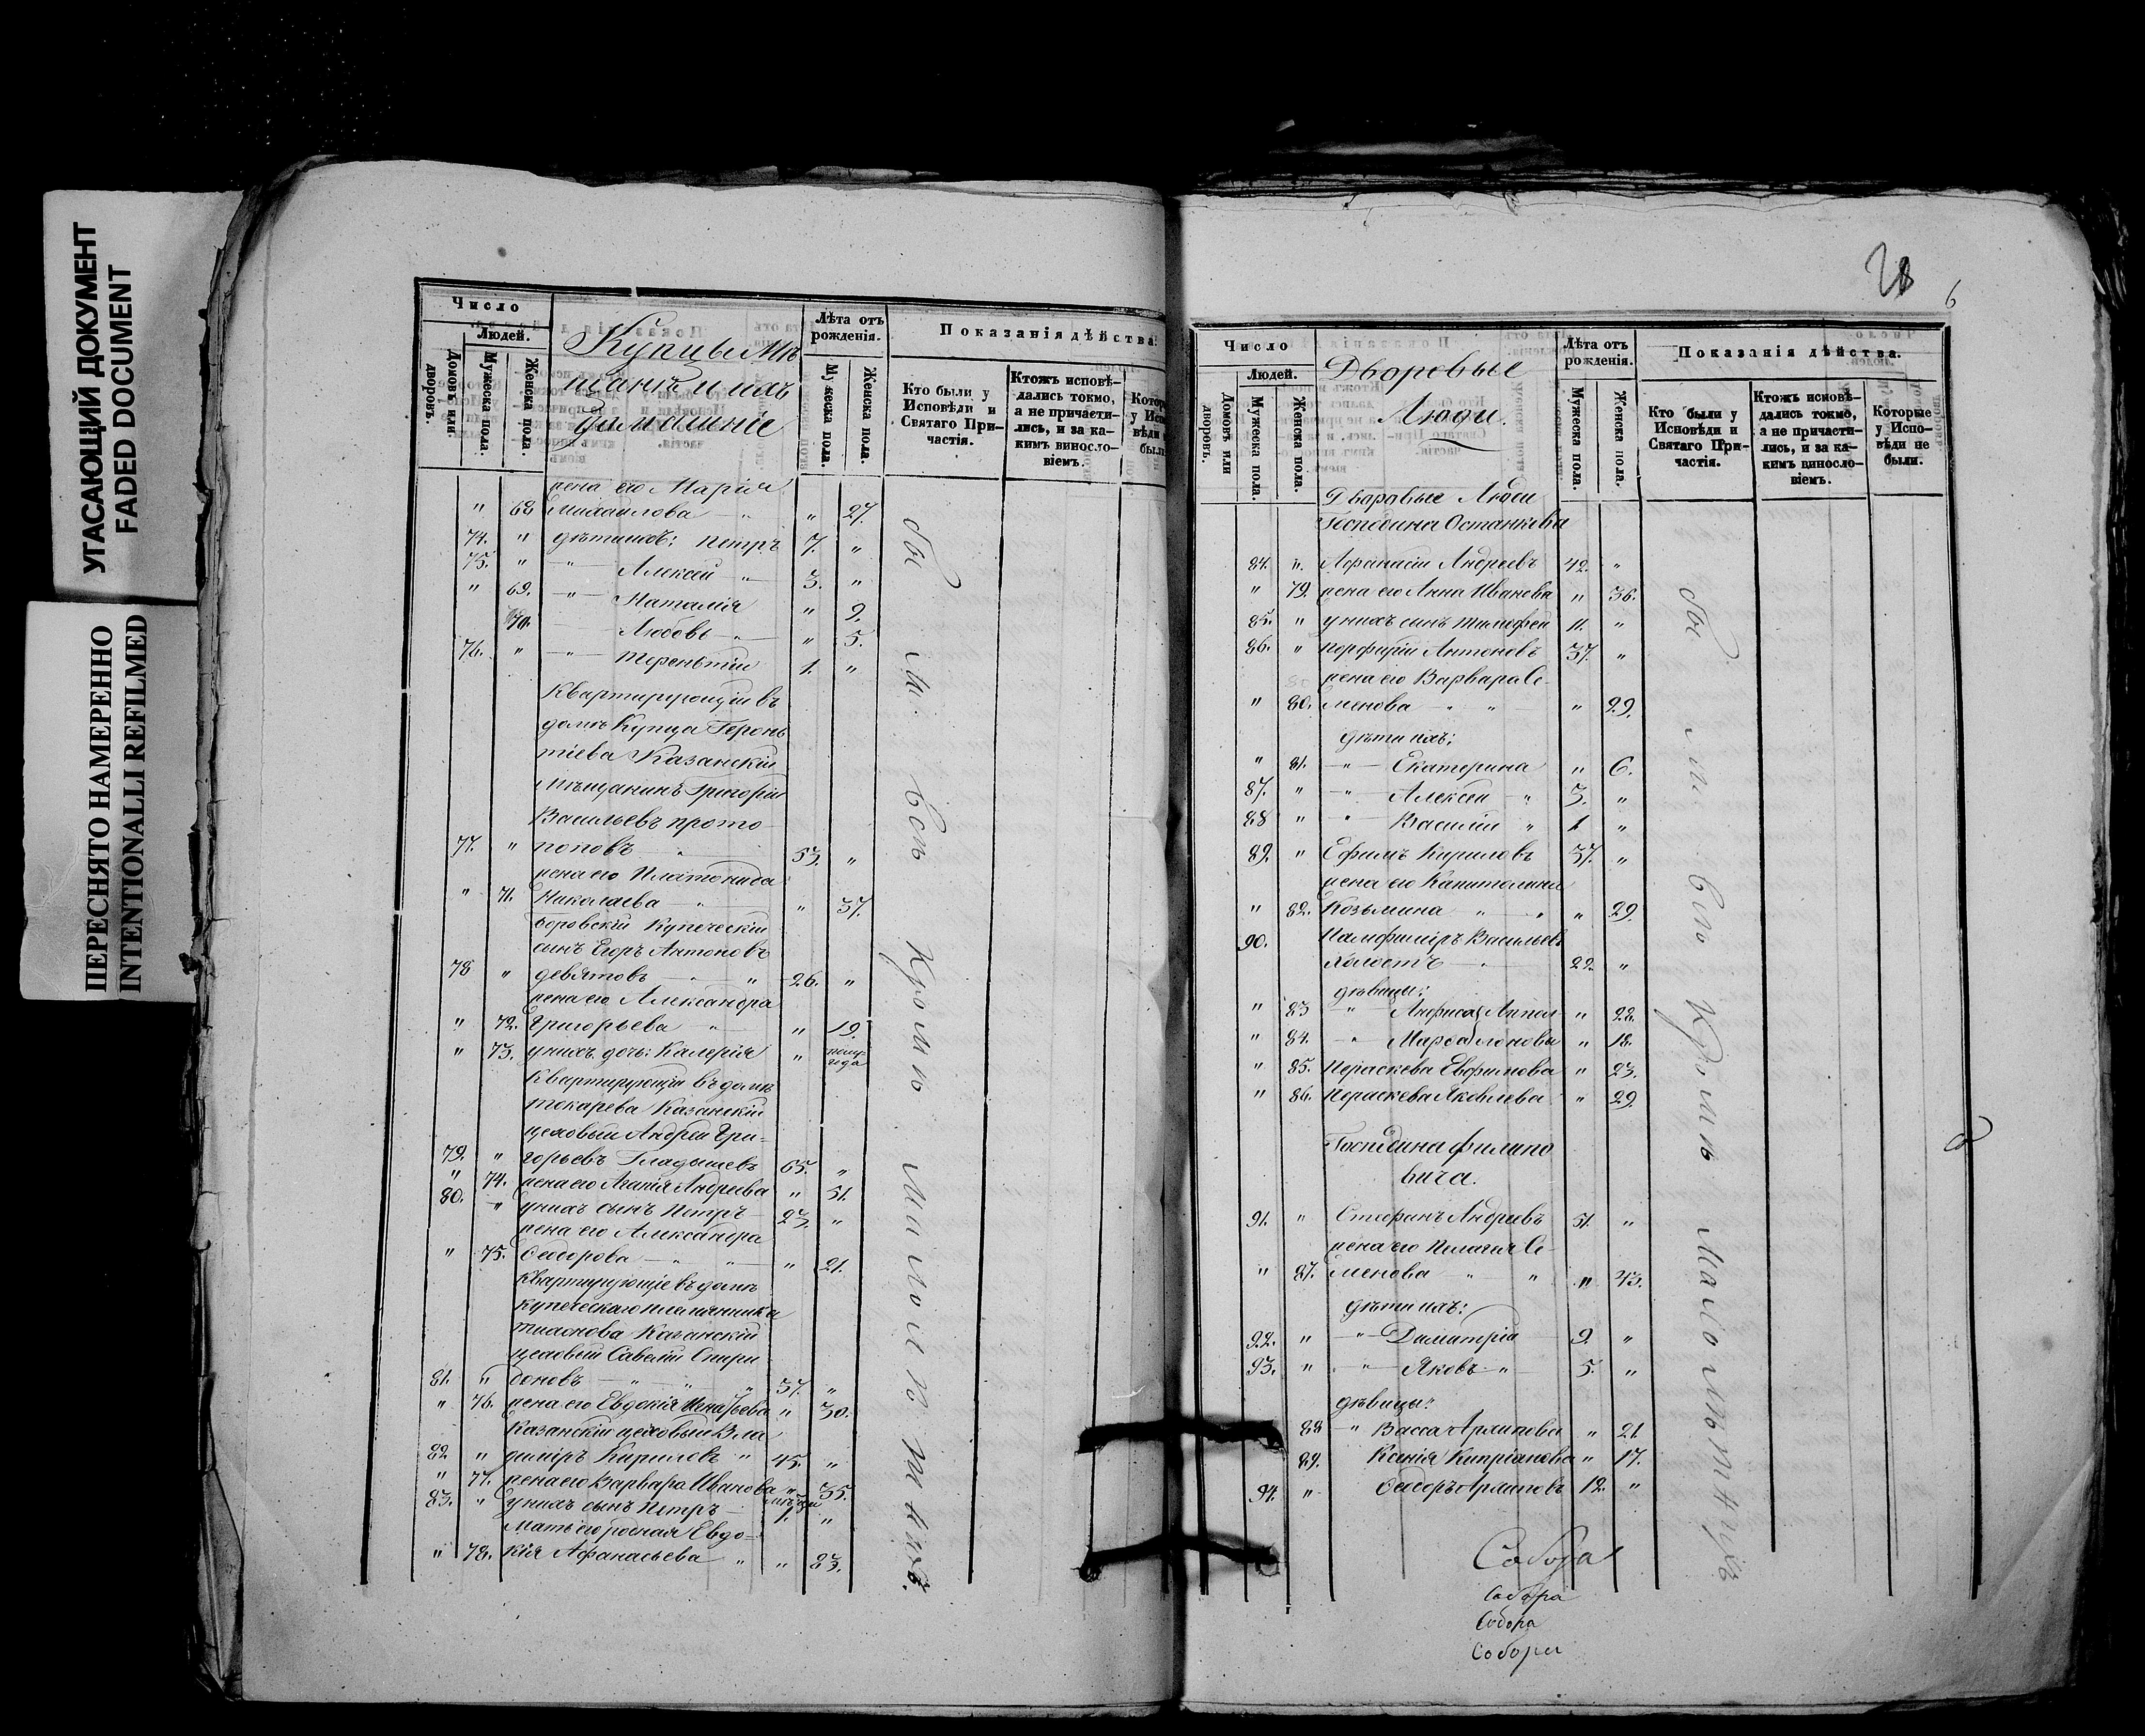 УГАСАЮЩИЙ ДОКУМЕНТ
FADED DOCUMENT
ПЕРЕСНЯТО НАМЕРЕННО
INTENTIONALLI REFILMED
Число
Людей.
Домовъ или дворовъ.
Мужеска пола.
Женска пола.
Купцы Мѣ
щанъ и ихъ
домашніе
Лѣта отъ рожденія.
Мужеска пола.
Женска пола.
Показанія дѣйства.
Кто были у Исповѣди и Святаго Причастія.
Ктожъ исповѣдались токмо, а не причастились, и за какимъ винословіемъ.
жена его Марія
" 68 Михаилова " " 27.
74. " дѣти ихъ: Петръ 7. "
75. " " Алексѣй " 3. "
" 69. " Наталія " 9.
70. Любовь " " 5.
76. " " Терентій 1. "
Квартирующій въ
домѣ Купца Геронь
тіева Казанскій
Мѣщанинъ Григорій
Васильевъ прото
77. " поповъ " 53. "
жена его Платонида
" 71. Николаева " " 37.
Боровскій Купеческій
сынъ Егоръ Антоновъ
78 " девятовъ " " 26. "
жена его Александра
" 72. Григорьева " " 19.
" 73. у нихъ дочь: Калерія " полу года
Квартирующій въ домѣ
токарева Казанскій
цеховый Андрей Гри-
79. " горьевъ Гладышевъ 65. "
" 74. жена его Агапія Андреева " 51.
80. " у нихъ сынъ Петръ 23. "
жена его Александра
" 75. Ѳедорова " " " 21.
Квартирующіе въ домѣ
купеческаго племянника
Казанскій
цеховый Савелій Спири
81. " доновъ " " " 37. "
" 76. жена его Евдокія Игнатьева " 30.
Казанскій цеховый Вла
82 " диміръ Кириловъ " 45. "
" 77. жена его Варвара Иванова " 35.
83. " у нихъ сынъ Петръ 1. "
Мать его родная Евдо-
" 78. кія Афанасьева " " 83.
6
Число
Людей.
Домовъ или дворовъ.
Мужеска пола.
Женска пола.
Дворовые
Люди.
Лѣта отъ рожденія.
Мужеска пола.
Женска пола.
Показанія дѣйства.
Кто были у Исповѣди и Святаго Причастія.
Ктожъ исповѣдались токмо, а не причастились, и за какимъ винословіемъ.
Которые у Исповѣди не были.
Дворовые Люди
Господина Останкова
84. " Афанасій Андреевъ 42. "
" 79. жена его Анна Иванова " 36.
85. " у нихъ сынъ Тимофей 11. "
86. " Порфирій Антоновъ 37. "
жена его Варвара Се-
" 80. менова " " " 29.
дѣти ихъ:
" 81. " Екатерина " 6.
87. " " Алексѣй " 3. "
88 " " Василій " 1 "
89. " Ефимъ Кириловъ 37. "
жена его Капитолина
" 82. Козьмина " " " 29.
90. Памфамиръ Васильевъ
Холостъ " 22. "
дѣвицы:
" 83 " Анфиса Аппол " 22.
" 84. " Марѳа лонова " 18.
" 85. Параскева Евфимова " 23.
" 86. Параскева Яковлева " 29.
Господина Филипо
вича.
91. " Стефанъ Андреевъ 51. "
жена его Пелагія Се-
" 87. менова " " " 43.
дѣти ихъ:
92. " " Димитрій 9. "
93. " " Яковъ " 5. "
дѣвицы:
88 " Васса Архипова " 21.
89. Ксенія Кипріанова " 17.
94. " Ѳедоръ Архиповъ 12. "
Собора
Собора
Собора
Соборы